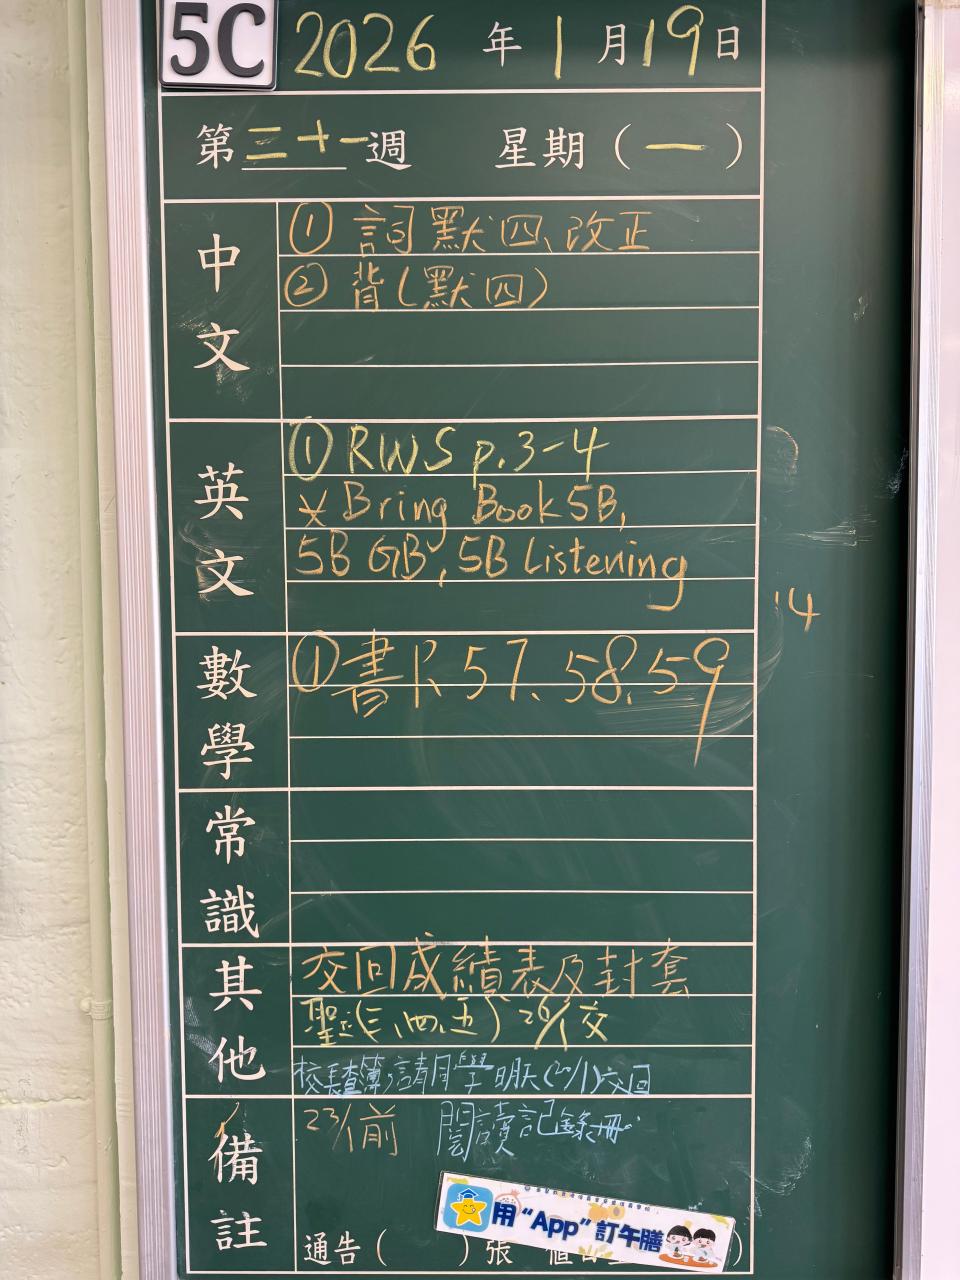 5C 2026 年 1 月 19 日
第 二十一 週 星期 ( 一 )
中文
① 詞默四、改正
② 背(默四)
英文
① RWS p.3-4
* Bring Book 5B,
5B GB, 5B Listening
14
數學
① 書 P. 57、58、59
常識
其他
交回成績表及封套
聖(三、四、五) 26/1 交
校長查簿，請同學明天(20/1)交回
備註
23/1前 閱讀記錄冊
用“App”訂午膳
通告( )張